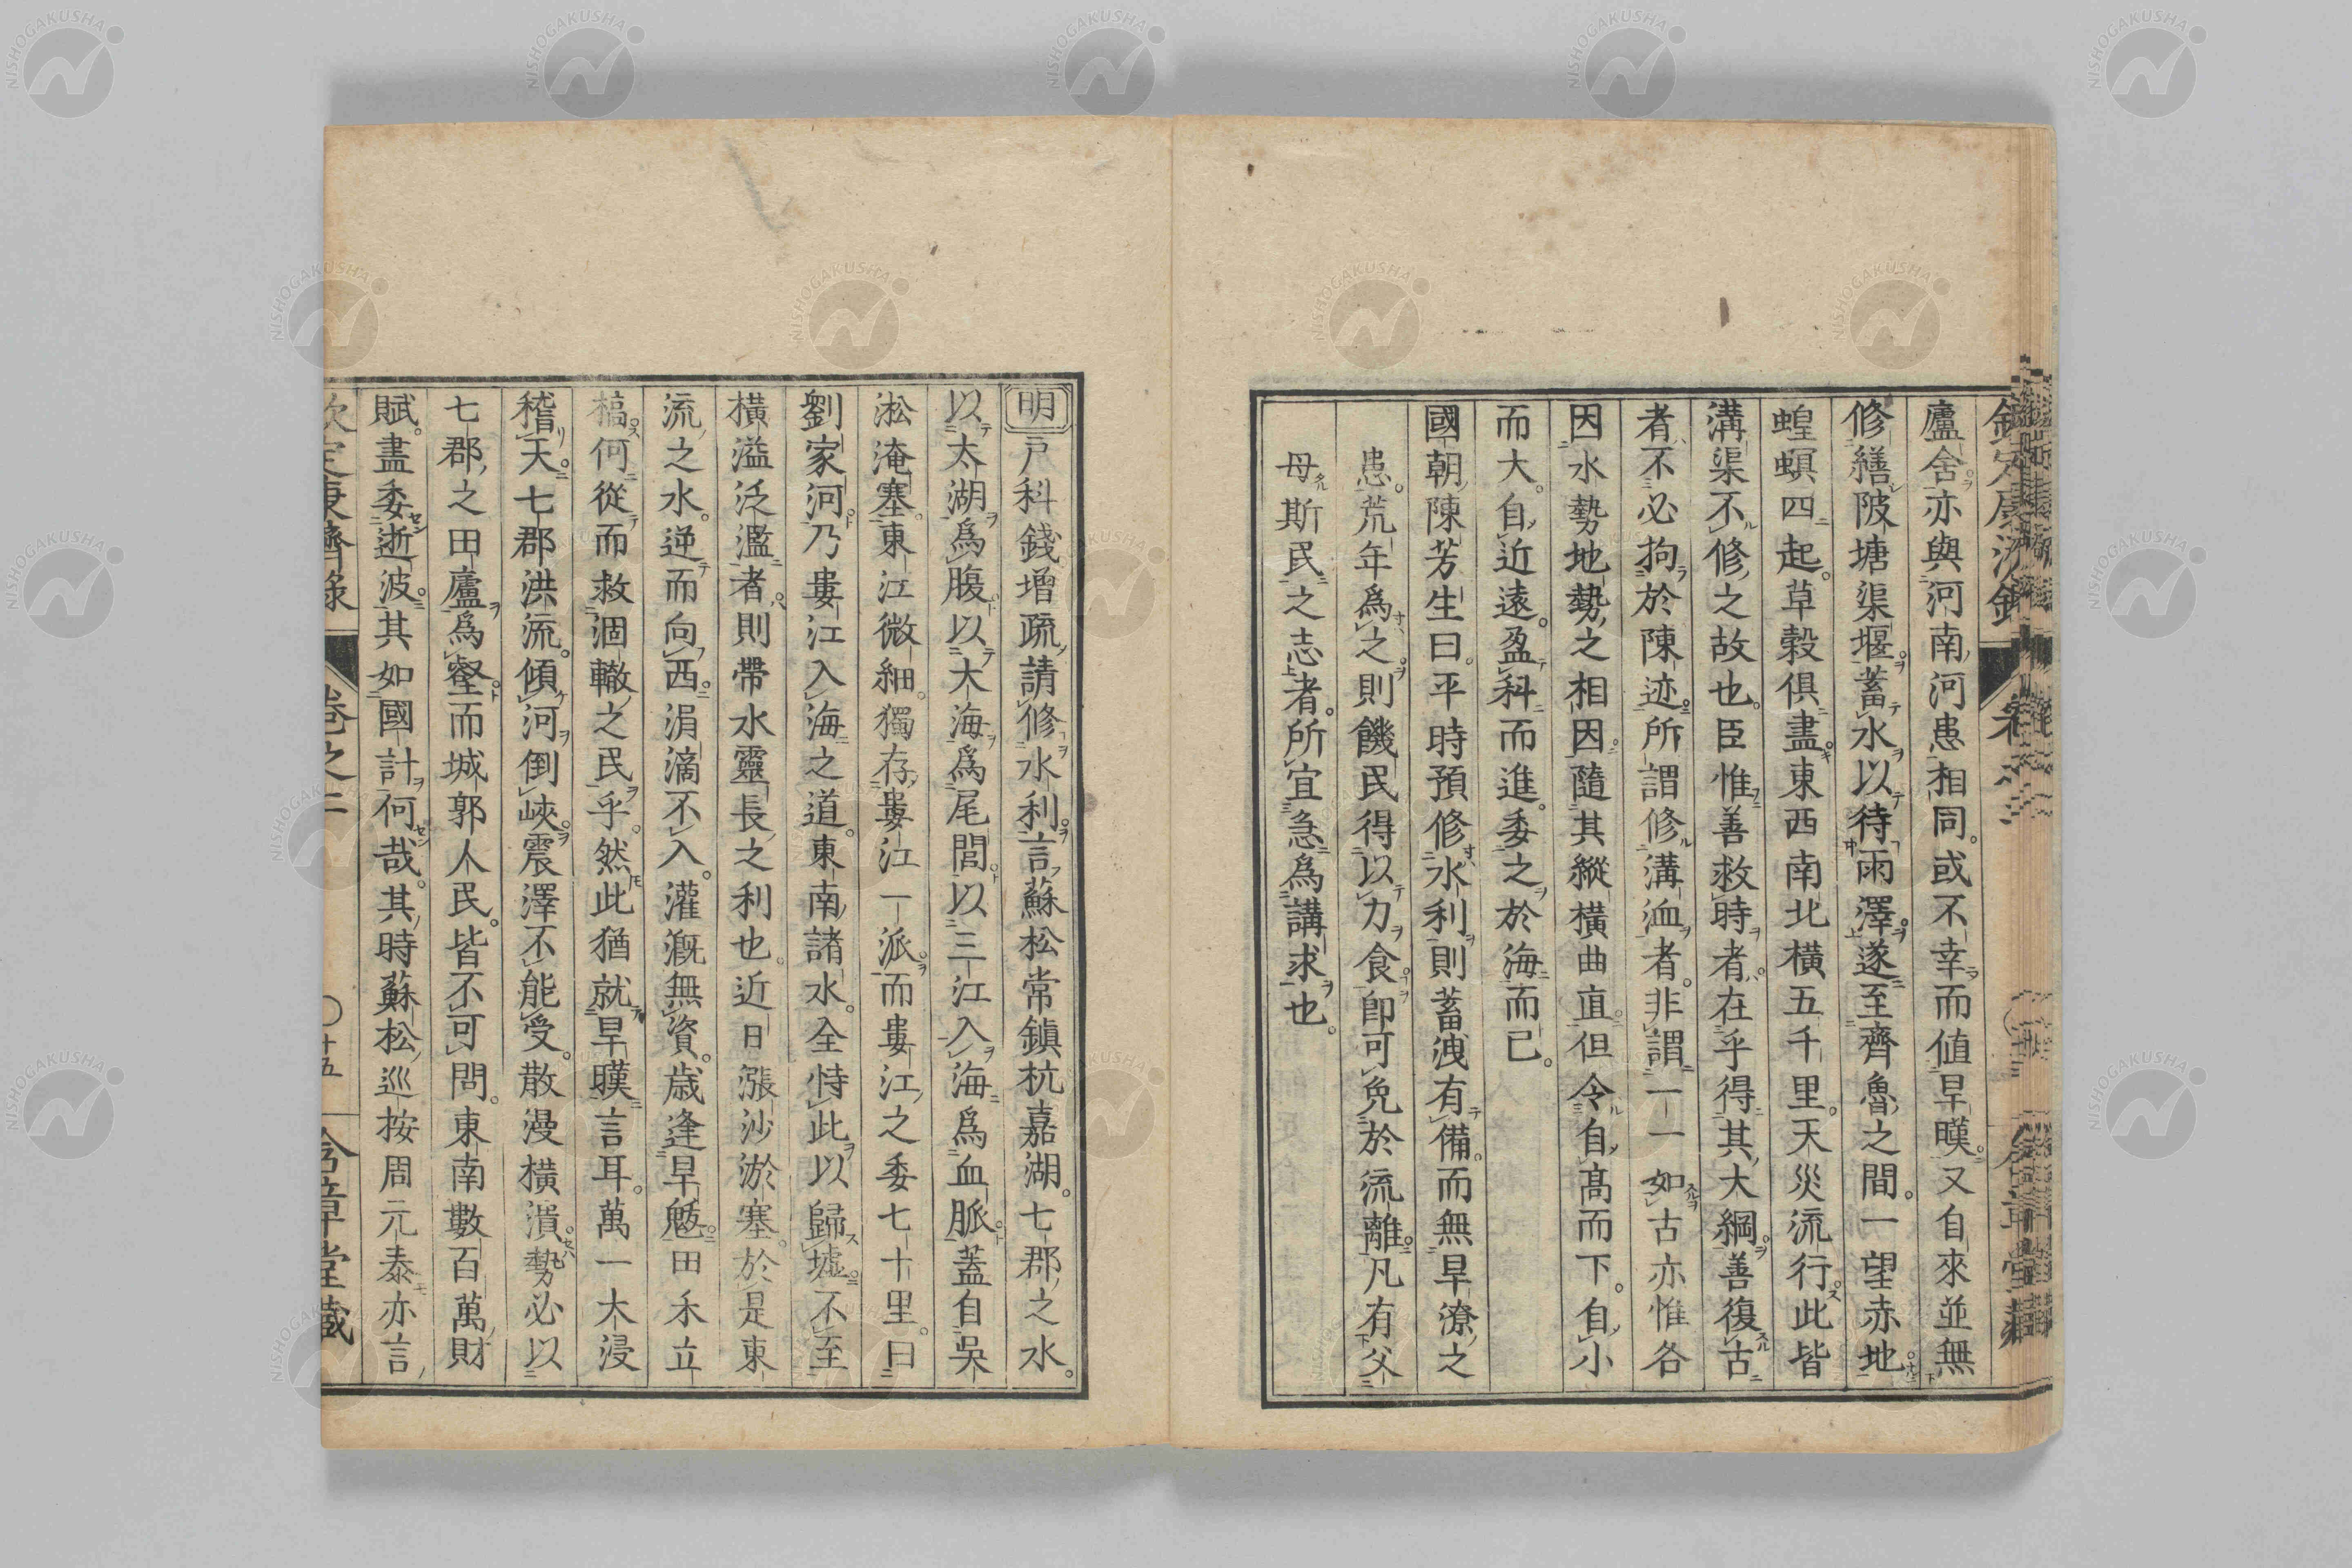 廬舍亦與河南河患相同。或不幸而値旱暵。又自來並無
修繕陂塘渠堰。蓄水以待雨澤。遂至齊魯之間。一望赤地。
蝗螟四起。草穀俱盡。東西南北橫五千里。天災流行。此皆
溝渠不修之故也。臣惟善救時者。在乎得其大綱。善復古
者。不必拘於陳迹。所謂修溝洫者。非謂一一如古亦惟各
因水勢地勢之相因。隨其縱橫曲直。但令自高而下。自小
而大。自近遠。盈科而進。委之於海而已。
國朝陳芳生曰。平時預修水利。則蓄洩有備。而無旱潦之
患。荒年爲之。則饑民得以力食。卽可免於流離。凡有父
母斯民之志者。所宜急爲講求也。
明戸科錢增疏。請修水利。言蘇松常鎭杭嘉湖。七郡之水。
以太湖爲腹。以大海爲尾閭。以三江入海爲血脈。蓋自吳
淞淹塞。東江微細。獨存婁江一派。而婁江之委七十里。曰
劉家河。乃婁江入海之道。東南諸水。全恃此以歸墟。不至
橫溢泛濫者。則帶水靈長之利也。近日漲沙淤塞。於是東
流之水。逆而向西。涓滴不入。灌漑無資。歲逢旱魃。田禾立
槁。何從而救涸轍之民乎。然此猶就旱暵言耳。萬一大浸
稽天。七郡洪流。傾河倒峽。震澤不能受。散漫橫潰。勢必以
七郡之田廬爲壑。而城郭人民。皆不可問。東南數百萬財
賦。盡委逝波。其如國計何哉。其時蘇松巡按周元泰亦言
欽定康濟錄 卷之二 〇十五 含章堂藏